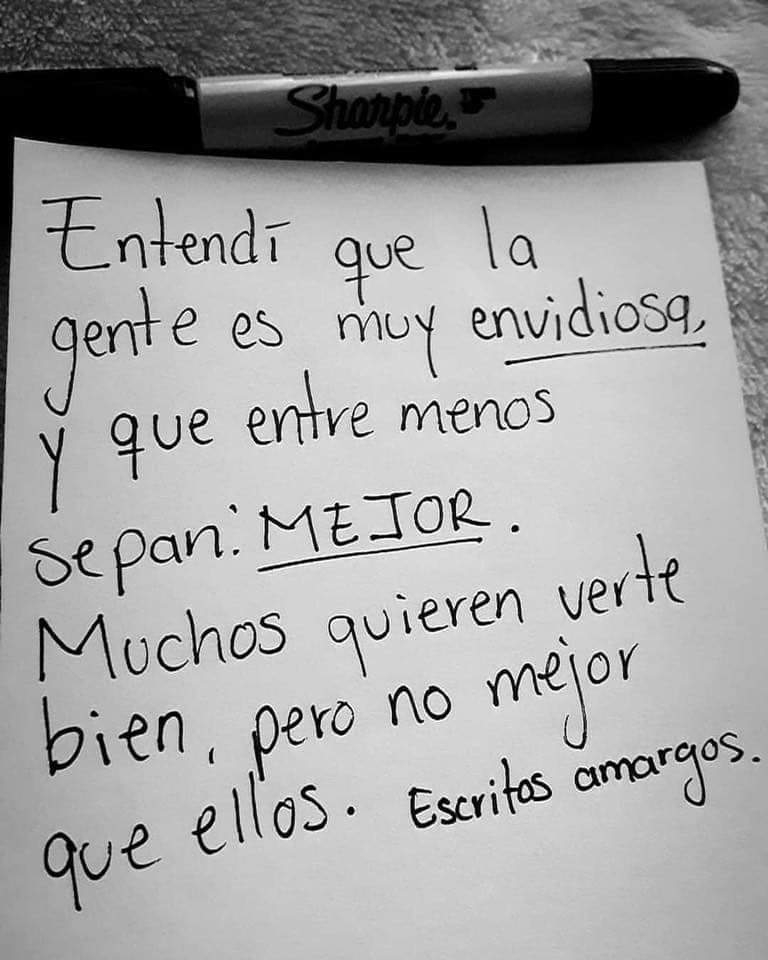 Sharpie.
Entendí que la
gente es muy envidiosa,
y que entre menos
sepan: MEJOR.
Muchos quieren verte
bien, pero no mejor
que ellos. Escritos amargos.